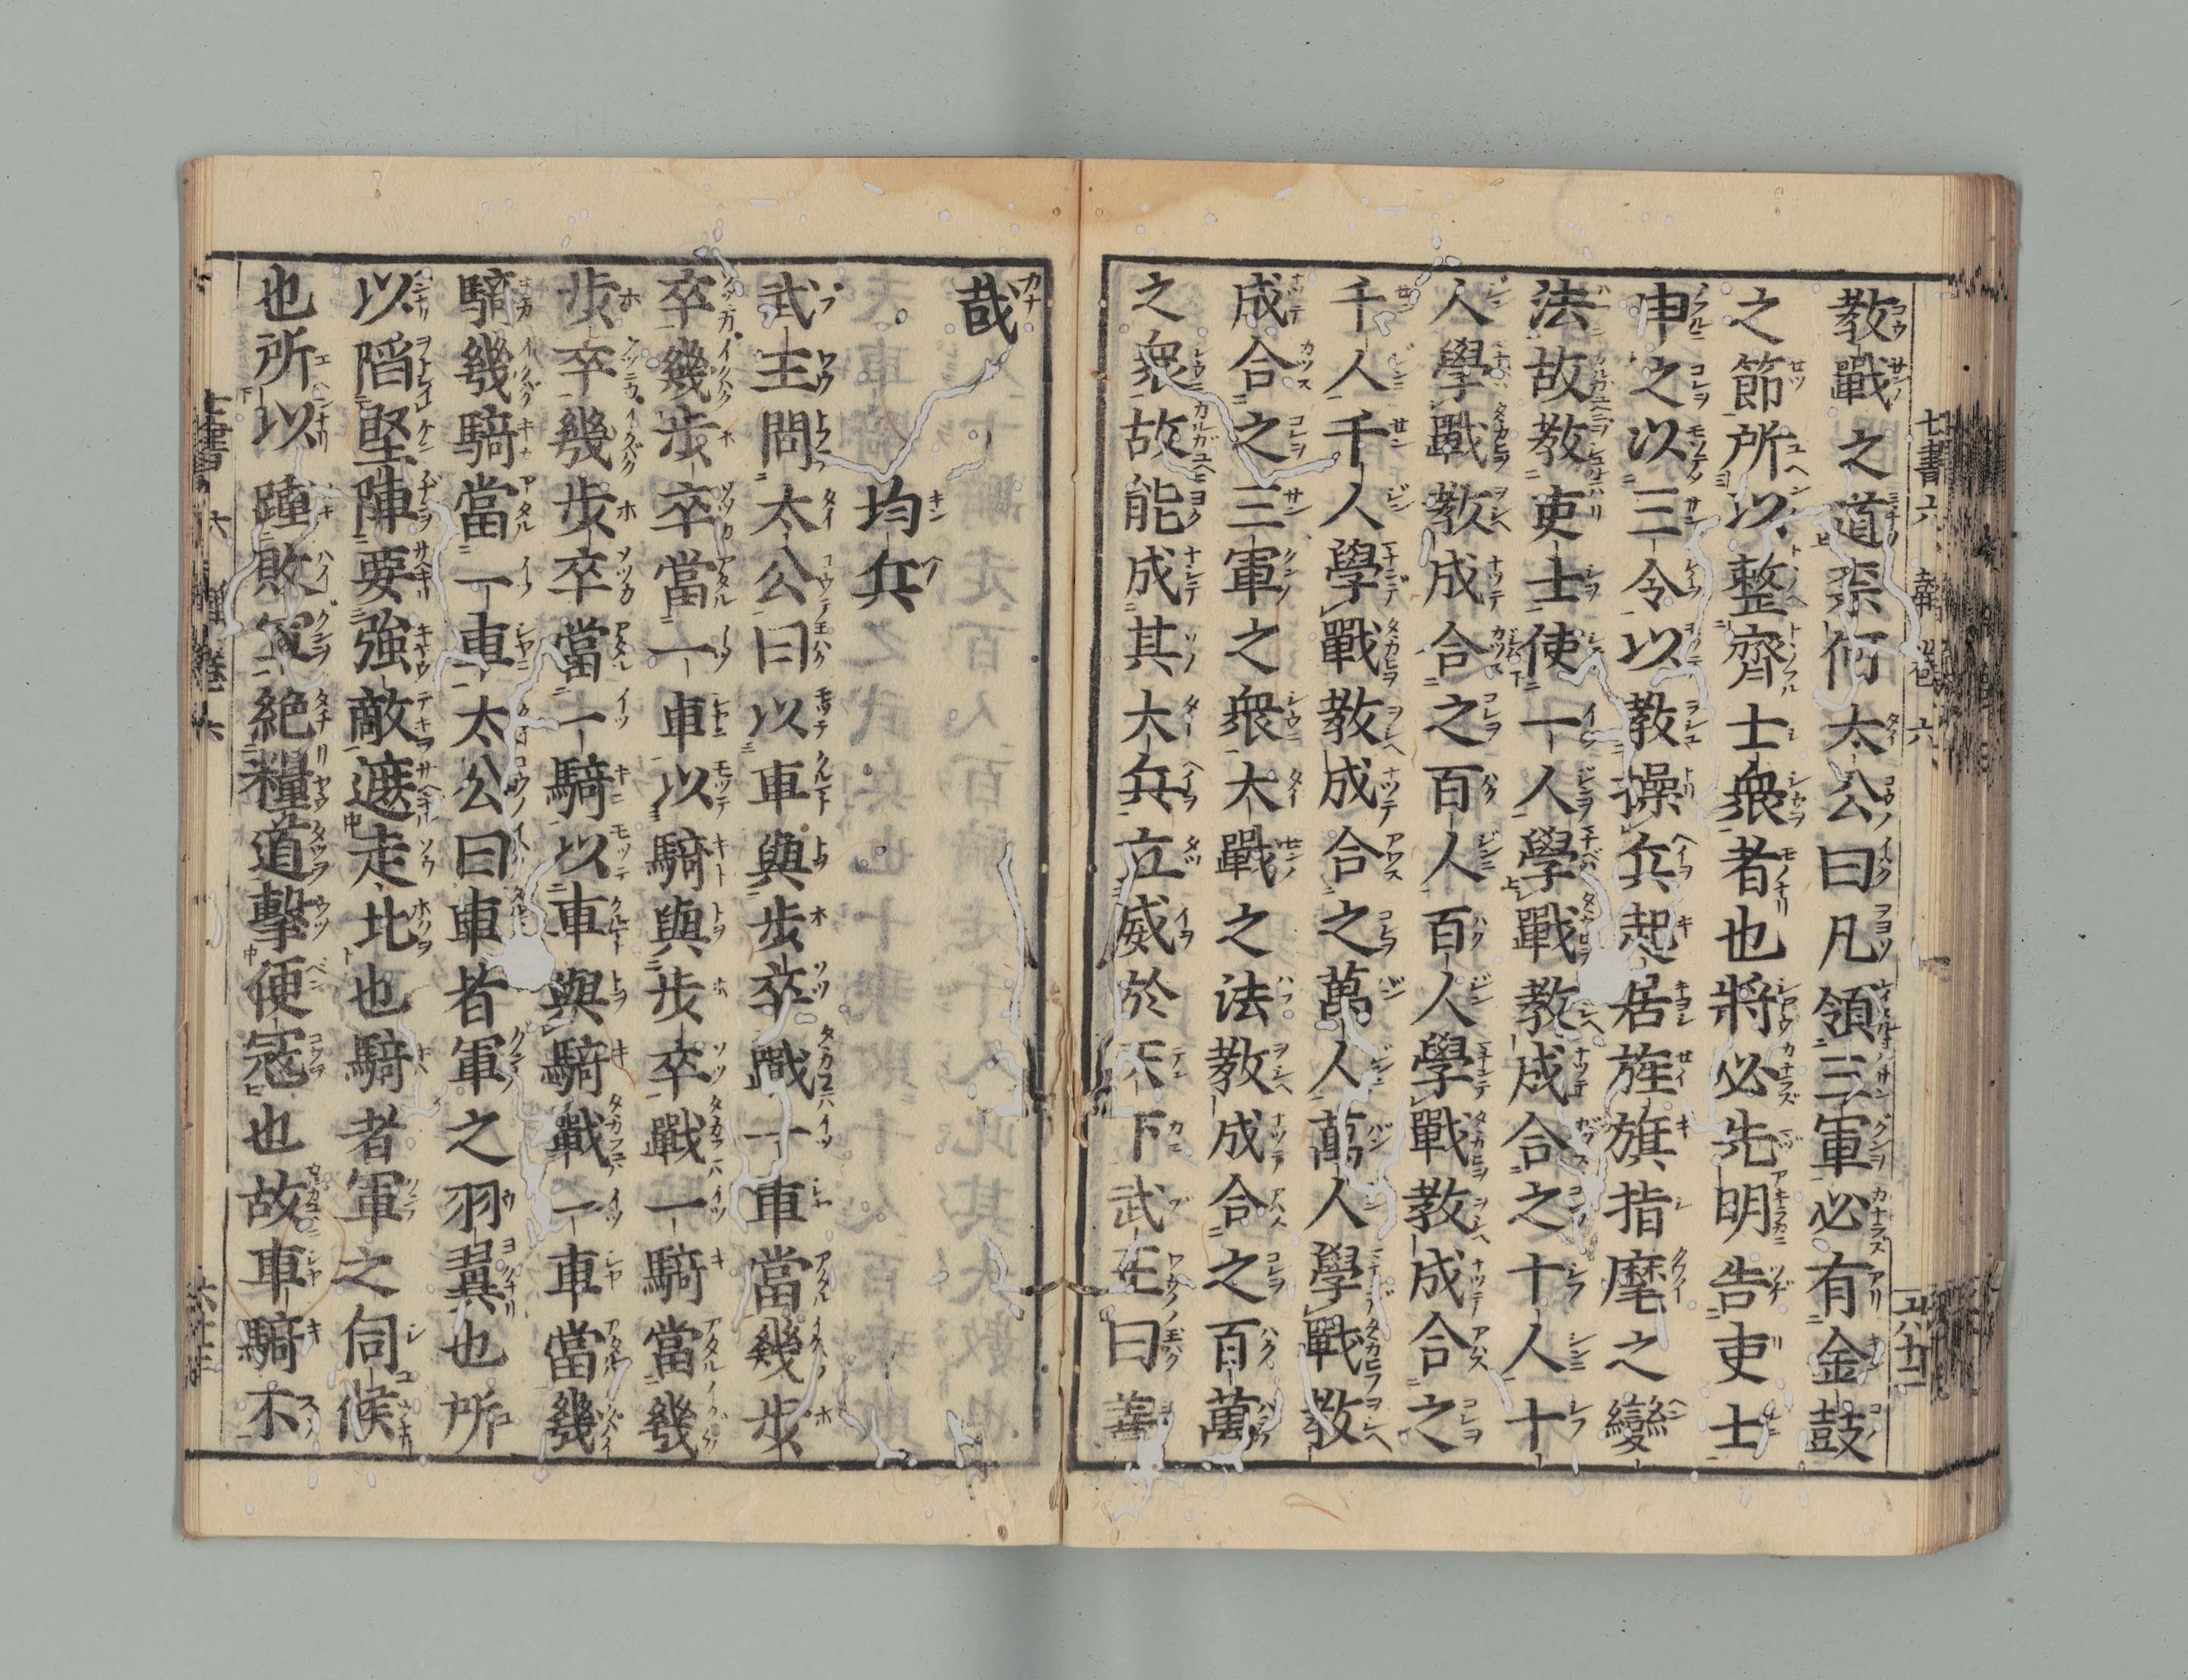 教戰之道柰何太公曰凡領三軍必有金鼓
之節所以整齊士衆者也將必先明告吏士
申之以三令以教操兵起居旌旗指麾之變
法故教吏士使一人學戰教成合之十人十
人學戰教成合之百人百人學戰教成合之
千人千人學戰教成合之萬人萬人學戰教
成合之三軍之衆大戰之法教成合之百萬
之衆故能成其大兵立威於天下武王曰善
哉
均兵
武王問太公曰以車與步卒戰一車當幾步
卒幾步卒當一車以騎與步卒戰一騎當幾
步卒幾步卒當一騎以車與騎戰一車當幾
騎幾騎當一車太公曰車者軍之羽翼也所
以陷堅陣要強敵遮走北也騎者軍之伺候
也所以踵敗軍絶糧道擊便寇也故車騎不